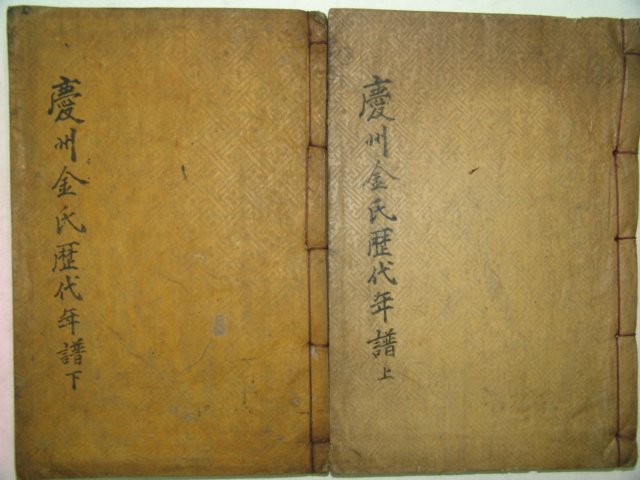 慶州金氏歴代年譜上
慶州金氏歴代年譜下